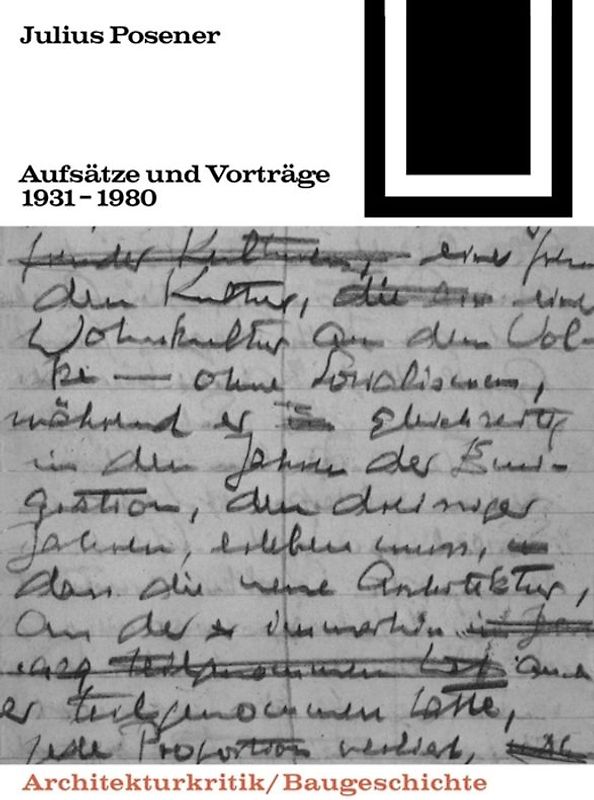 Julius Posener
Aufsätze und Vorträge
1931–1980
fremder Kulturen, einer frem-
den Kultur, die eine
Wohnkultur an dem Vol-
ke — ohne Sozialismus,
während er gleichzeitig
in den Jahren der Emi-
gration, den dreissiger
Jahren, erleben muss,
dass die neue Architektur,
an der immerhin
teilgenommen hat auch
er teilgenommen hatte,
jede Proportion verliert,
Architekturkritik/Baugeschichte